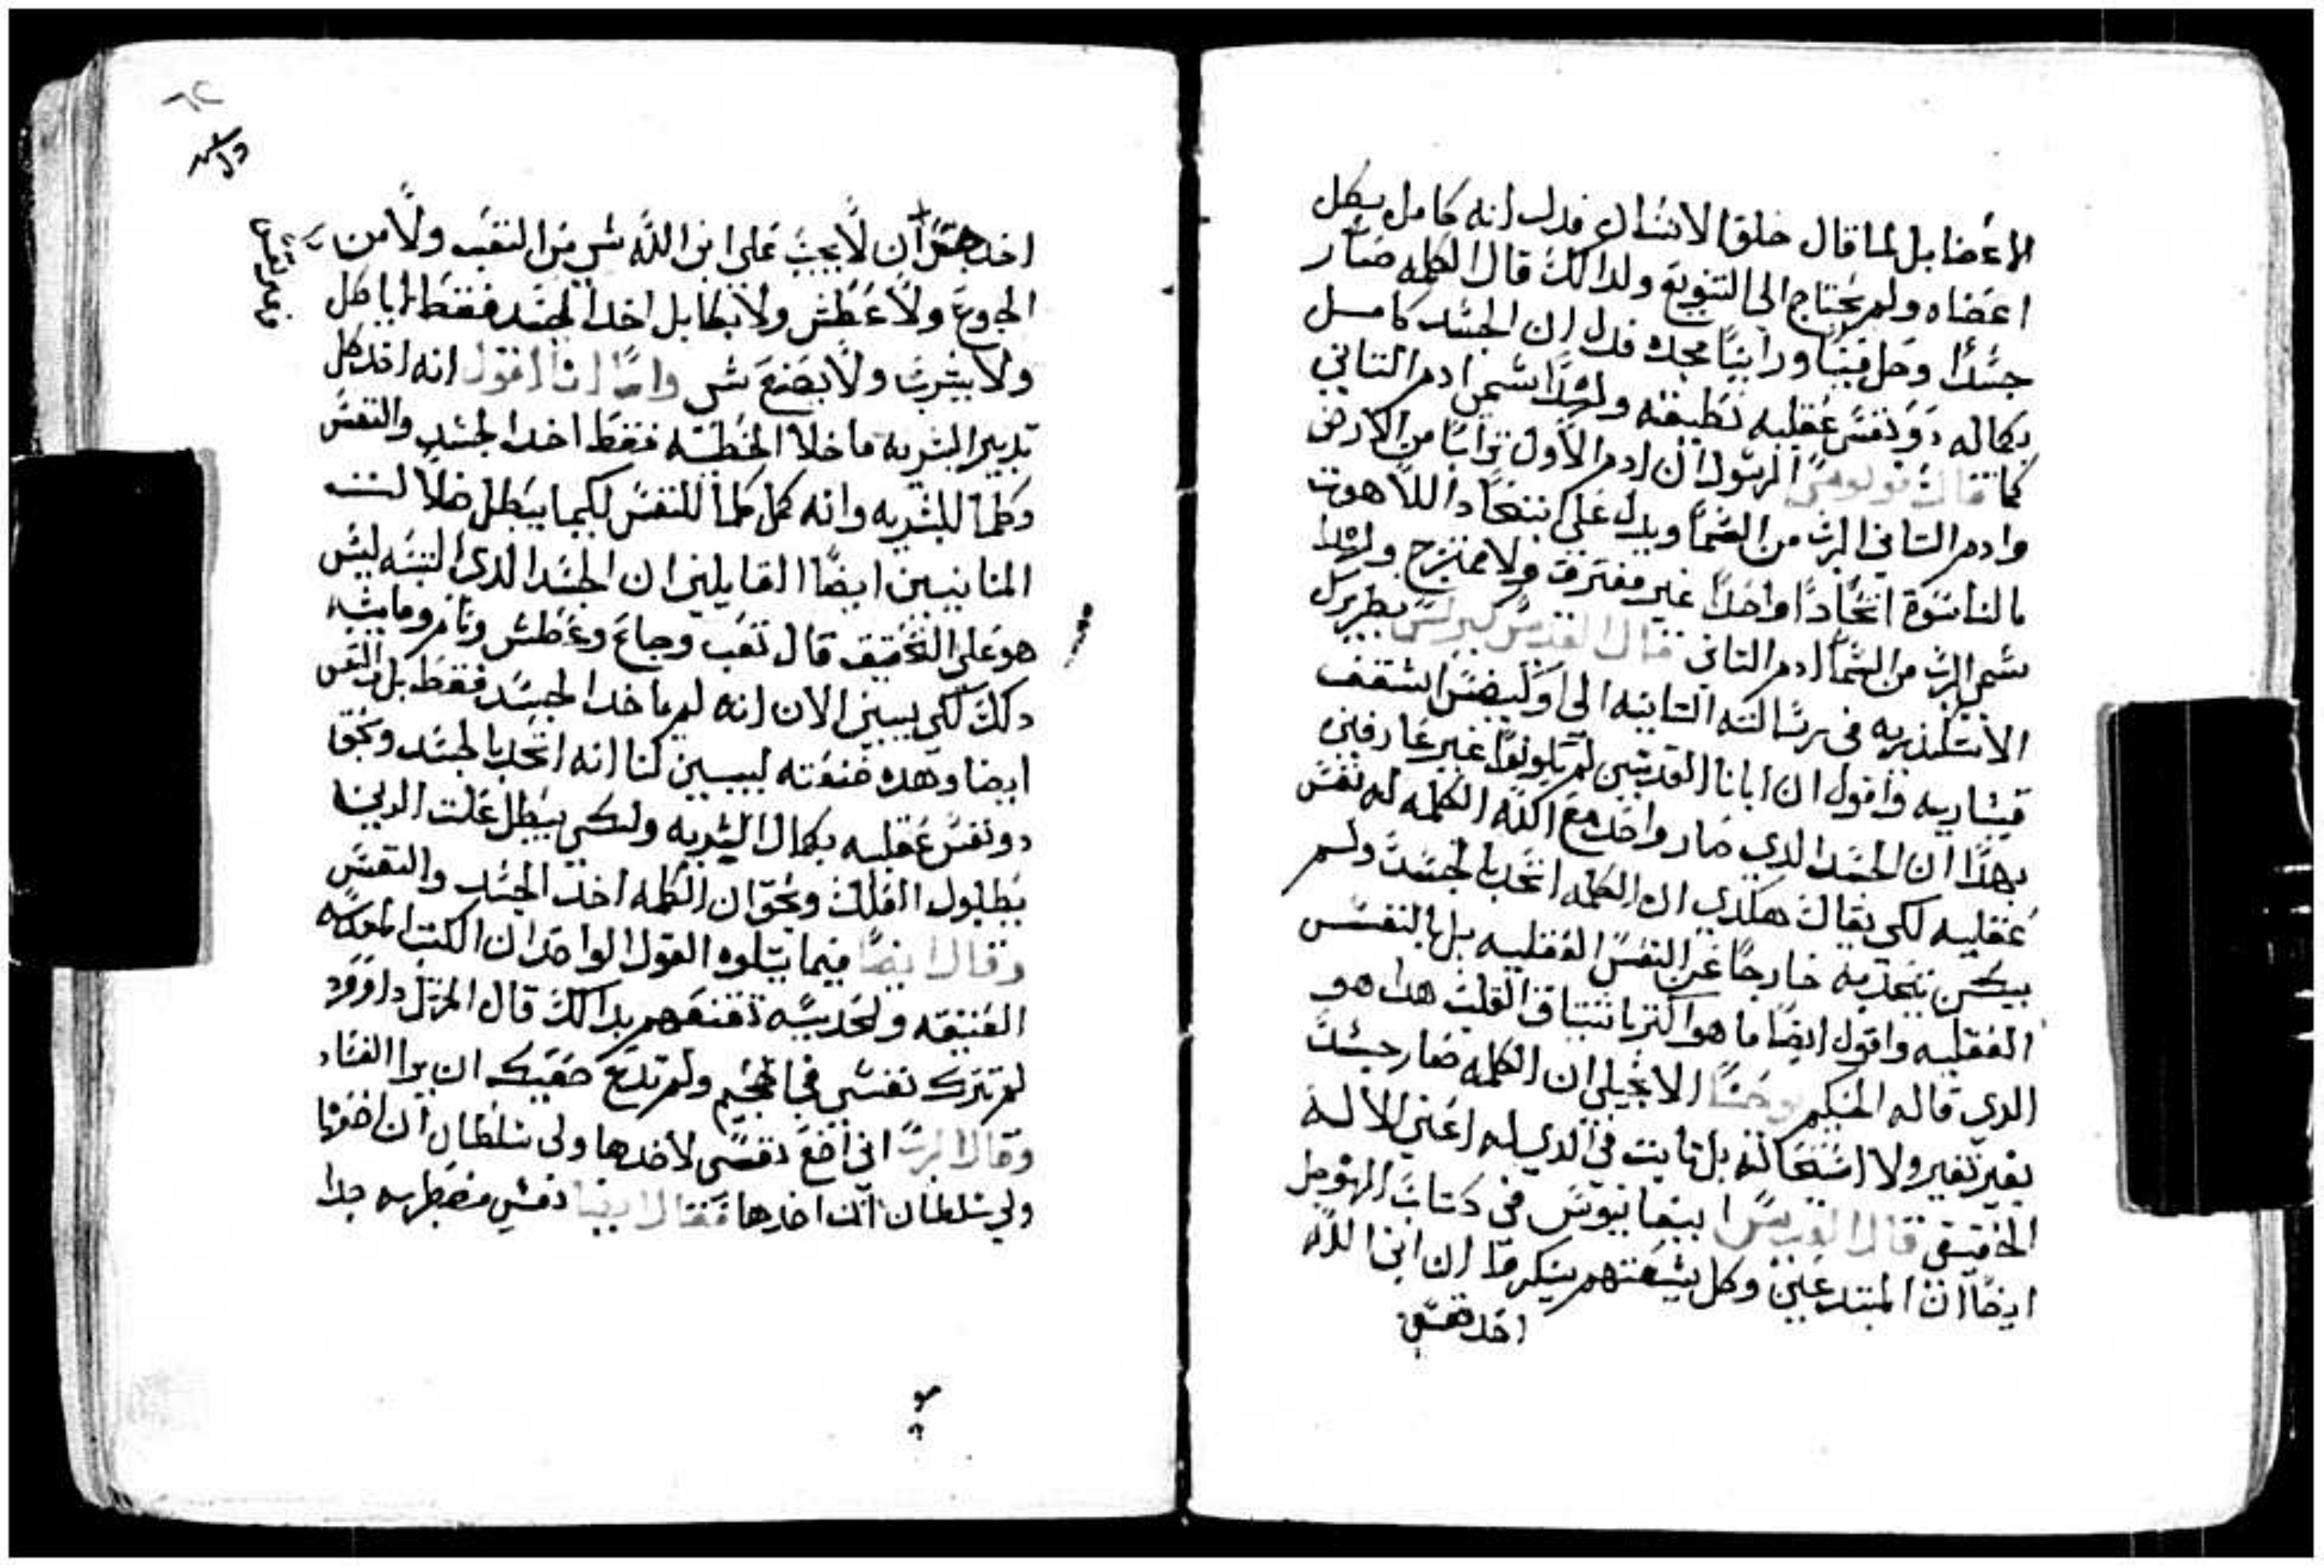 الاعضا بل لما قال خلق الانسان فدل انه كامل بكل
اعضاه ولم يحتاج الى التنويع ولدالك قال الكلمه صار
جسدًا وحل فينا وراينا مجده فدل ان الجسد كامل
بكماله دو نفس عقليه نطيقته ولهدا سمي ادم التاني
كما قال بولوس الرسول ان ادم الاول ترابًا من الارض
وادم التاني الرب من السما ويدل على اتحاد اللاهوت
بالناسوة اتحادًا واحدًا غير مفترق ولا ممتزج ولهدا
سمي الرب من السما ادم التاني قال القديس كيرلس بطريرك
الاسكندريه في رسالته التانيه الى اسقف
قيساريه واقول ان ابانا القديسين لم يكونوا غير عارفين
بهدا ان الجسد الدي صار واحد مع الله الكلمه له نفس
عقليه لكي يقال هكدي ان الكلمه اتحد بالجسد ولم
يكن تجده خارجًا عن النفس العقليه بل بالنفس
العقليه واقول ايضًا ما هو اكتر باتساق القلب هدا هو
الدي قاله الحكيم يوحنا الانجيلي ان الكلمه صار جسد
بغير تغير ولا استحاله بل تابت في الدي له اعني الاله
الحقيقي قال القديس ابيفانيوس في كتاب
ايضًا ان المبتدعين وكل شيعتهم ينكر ان ابن الله
اخد
اخد ان لا يجب على ابن الله شي من التعب ولا من
الجوع ولا عطش ولا بكا بل اخد الجسد فقط لا ياكل
ولا يشرب ولا يصنع شي واما انا اقول انه اخد كل
تدبير البشريه ما خلا الخطيه فقط اخد الجسد والنفس
وكلما للبشريه وانه كمل كلما للنفس لكيما يبطل ضلالت
المنانيين ايضًا القايلين ان الجسد الدي البسه ليس
هو على التحقيق قال تعب وجاع وعطش ونام وما يشبه
دلك لكي يبين الان انه لم ياخد الجسد فقط بل النفس
ايضا وهده صنعته ليبين لنا انه اتحد بالجسد وبحق
دو نفس عقليه بكمال البشريه ولكي يبطل علت الدين
يبطلون الفلك وبحق ان الكلمه اخد الجسد والنفس
وقال ايضًا فيما يتلوه القول الواحد ان الكتب المقدسه
العتيقه والحديثه تقنعهم بدالك قال المرتل داوود
لم تترك نفسي في الجحيم ولم تدع صفيك ان يرا الفساد
وقال الرب اني اضع نفسي لاخدها ولي سلطان ان اضعها
ولي سلطان ان اخدها فقال ايضا نفسي مضطربه جدا